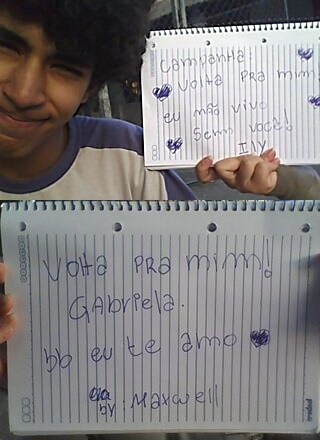 Campanha:
Volta pra mim!
eu não vivo
sem você!
Ily
Volta pra mim!
Gabriela.
bb eu te amo
by: Maxwell